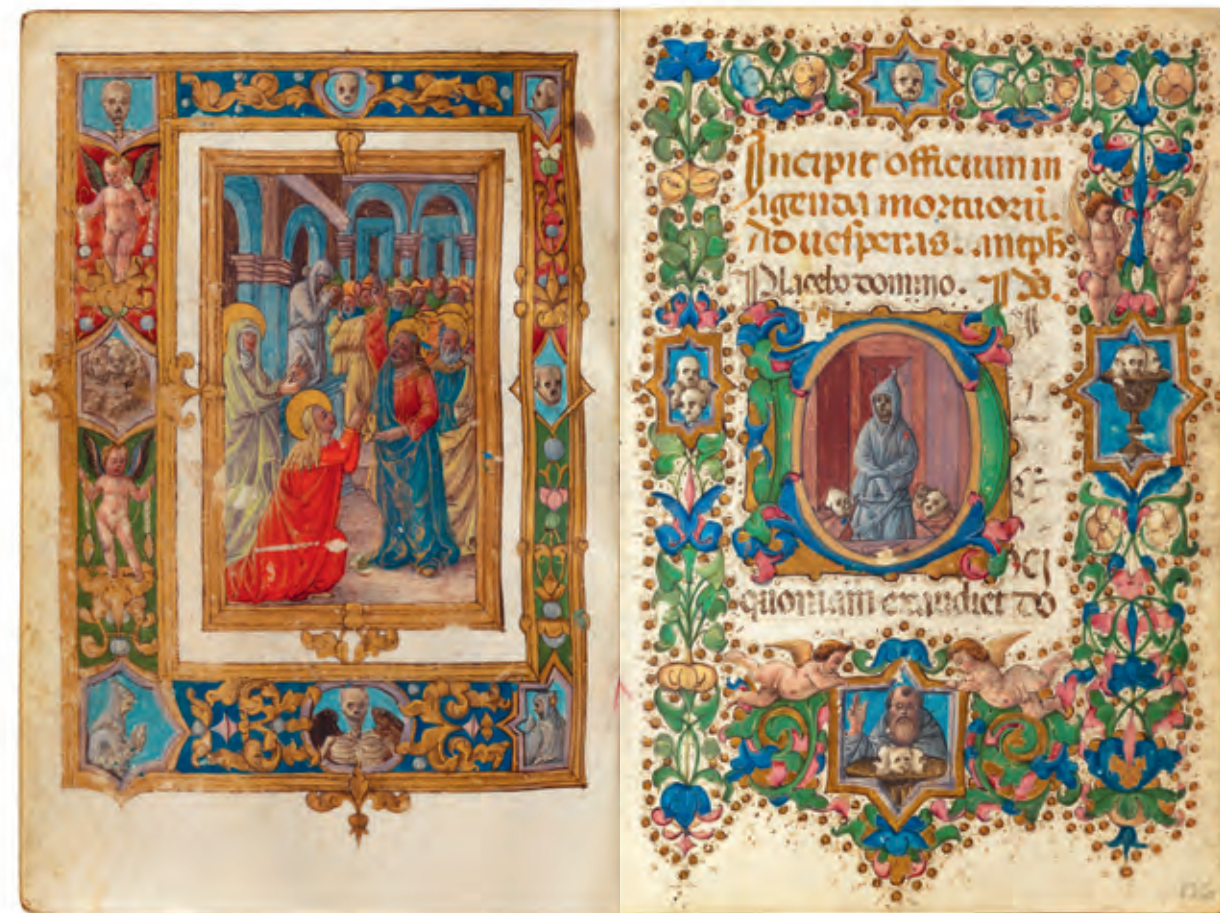 Incipit officium in
agenda mortuorū.
Ad uesperas. antph̄
Placebo domino. Ps.
quoniam exaudiet do